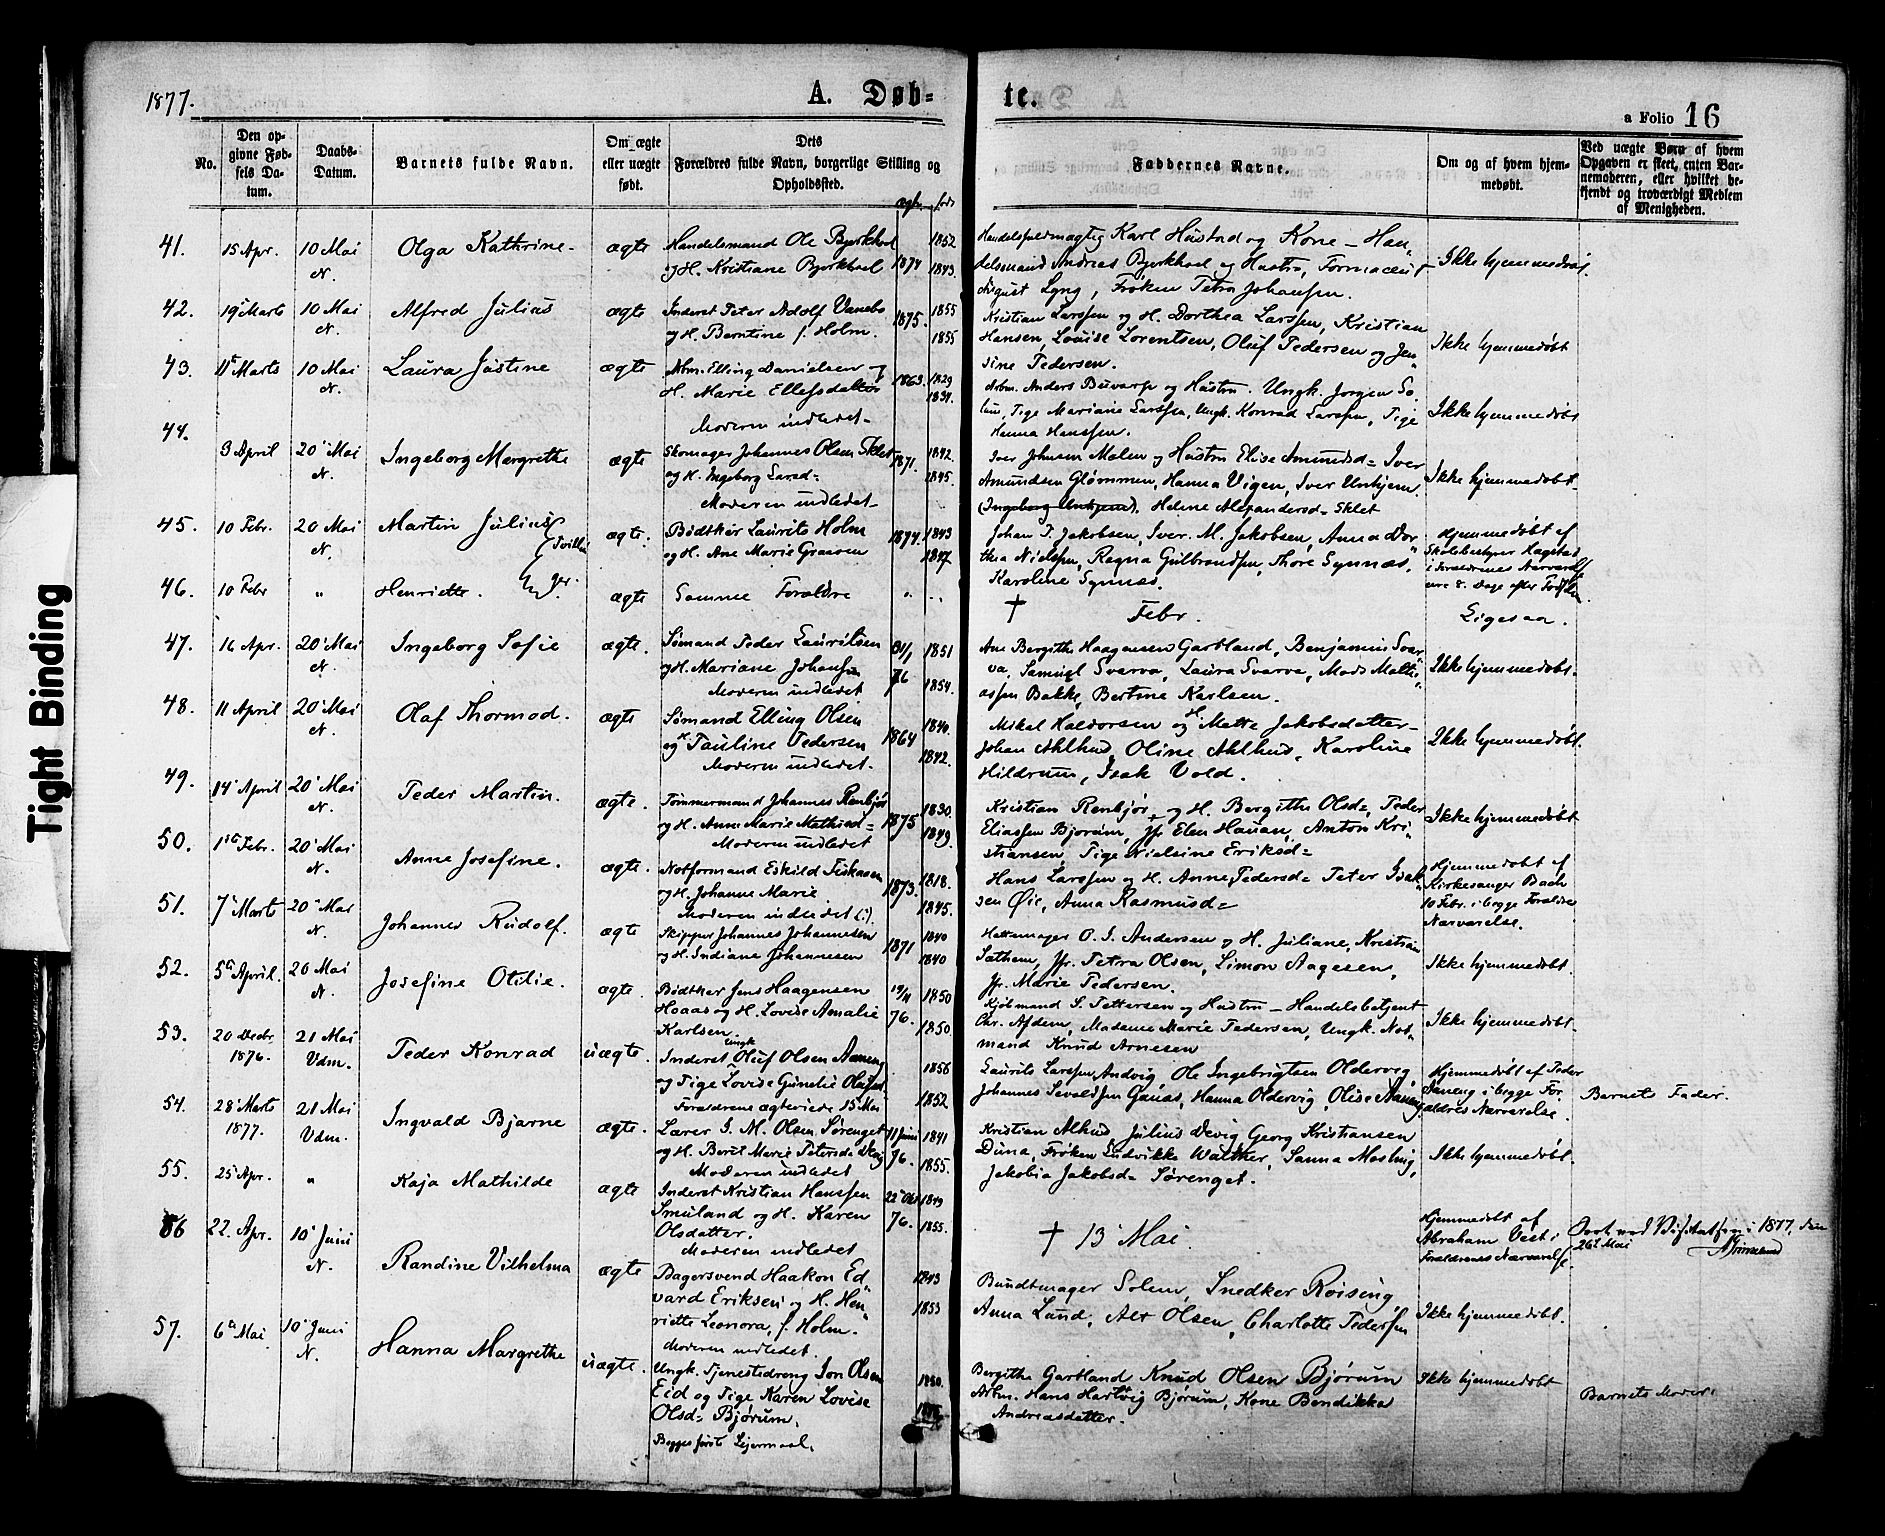 1877.
A. Døb-
te.
a Folio 16
No.
Den op-
givne Fød-
sels Da-
tum.
Daabs-
Datum.
Barnets fulde Navn.
Om ægte
eller uægte
født.
Dets
Forældres fulde Navn, borgerlige Stilling og
Opholdssted.
Faddernes Navne.
Om og af hvem hjem-
medøbt.
Ved uægte Børn af hvem
Opgaven er skeet, enten Bar-
nemoderen, eller hvilket be-
kjendt og troværdigt Medlem
af Menigheden.
41. 15 Apr. 10 Mai N. Olga Kathrine ægte
Handelsmand Ole Bjerkhoel
og H. Kristiane Bjerkhoel 1874 1852 1843.
Handelsfuldmægtig Karl Hustad og Kone - Han
delsmand Andreas Bjerkhoel og Hustru,
August Lyng, Frøken Petra Johansen.
Ikke hjemmedøbt.
42. 19 Marts 10 Mai N. Alfred Julius ægte
Inderst Peter Adolf Vanebo
og H. Berntine f. Holm. 1875. 1855 1855
Kristian Larssen og H. Dorthea Larssen, Kristian
Hansen, Louise Lorentsen, Oluf Pedersen og Jen
sine Pedersen.
Ikke hjemmedøbt
43. 11 Marts 10 Mai N. Laura Justine ægte
Arbm. Elling Danielsen og
H. Marie Ellefsdatter 1863. 1829 1831.
Moderen indledet
Arbm. Anders Buvarp og Hustru. Ungk. Jorgen So
lum, Pige Mariane Larssen, Ungk. Konrad Larssen, Pige
Hanna Hanssen.
Ikke hjemmedøbt
44. 3 April 20 Mai N. Ingeborg Margrethe ægte
Skomager Johannes Olsen Sklet
og H. Ingeborg Larsd= 1871. 1842. 1845.
Moderen indledet
Iver Johnsen Molen og Hustru Elise Amundsd= Iver
Amundsen Glømmen, Hanna Vigen, Iver Unhjem.
(Ingeborg Unhjem). Helene Alexandersd= Sklet
Ikke hjemmedøbt
45. 10 Febr. 20 Mai N. Martin Julius ægte.
Bødtker Laurits Holm
og H. Ane Marie Graaven 1874. 1843 1847
Johan J. Jakobsen, Iver M. Jakobsen, Anna Dor
thea Nielssen, Ragna Gulbrandsen, Thore Synnæs.
Karoline Synnæs.
Hjemmedøbt af
Skolebestyrer Hagstad
i Forældrenes Nærværelse
8. Dage efter Fødselen
46. 10 Febr " Henriette. Tvillinger. ægte
Samme Forældre
† Febr.
Ligesaa.
47. 16 Apr. 20 Mai N. Ingeborg Sofie ægte.
Sømand Peder Lauritsen
og H. Mariane Johansen 31/1 76 1851 1854.
Moderen indledet
Ane Bergitte Haagensen Gartland, Benjamin Svar
va, Samuel Svarva, Laura Svarva, Mads Mathi
assen Bakke, Bertine Karlsen.
Ikke hjemmedøbt.
48. 11 April 20 Mai N. Olaf Thormod. ægte
Sømand Elling Olsen
og H. Pauline Pedersen 1864 1840. 1842.
Moderen indledet.
Mikal Haldorsen og H. Mette Jakobsdatter
Johan Ahlhud, Oline Ahlhud, Karoline
Hildrum, Isak Vold.
Ikke hjemmedøbt.
49. 14 April 20 Mai N. Peder Martin. ægte.
Tømmermand Johannes Renbjør
og H. Anne Marie Mathiasd= 1875 1830. 1849.
Moderen indledet
Kristian Renbjør og H. Bergitte Olsd=, Peder
Eliassen Bjorum, Jfr Elen Hauan, Anton Kri
stiansen, Pige Nielsine Eriksd=
Ikke hjemmedøbt
50. 1ste Febr. 20 Mai N. Anne Josefine. ægte.
Notformand Eskild Fiskaaen
og H. Johanne Marie 1873. 1818. 1845.
Moderen indledet (!)
Hans Larssen og H. Anne Pedersd= Peter Isak
sen Øie, Anna Rasmusd=
Hjemmedøbt af
Kirkesanger Bach
10 Febr. i begge Forældres
Nærværelse.
51. 7 Marts 20 Mai N. Johannes Rudolf. ægte
Skipper Johannes Johannesen
og H. Indiane Johannesen 1871 1840 1840
Hattemager O. J. Andersen og H. Juliane, Kristian
Sathem, Jfr. Petra Olsen, Simon Aagesen,
Jfr. Marie Pedersen.
Ikke hjemmedøbt.
52. 5 April. 20 Mai N. Josefine Otilie. ægte.
Bødtker Jens Haagensen
Hoaas og H. Lovise Amalie 19/11 76. 1850 1850.
Karlsen.
Kjøbmand S. Pettersen og Hustru - Handelsbetjent
Chr. Afdem, Madame Marie Pedersen, Ungk. Not
mand Knud Arnesen
Ikke hjemmedøbt.
53. 20 Decbr. 1876. 21 Mai Vdm. Peder Konrad uægte.
Ungk Inderst Oluf Olsen Aaneng
og Pige Lovise Gunelie Olufsd. 1856 1852
Forældrene ægteviede 15 Mai
Laurits Larssen Andvig, Ole Ingebrigtsen Oldervig,
Johannes Sevaldsen Ganas, Hanna Oldervig, Olise Aaneng
Hjemmedøbt af Peder
Aaneng i begge For
ældres Nærværelse.
Barnets Fader.
54. 28 Marts 1877. 21 Mai Vdm. Ingvald Bjarne ægte.
Lærer J. M. Olsen Sørenget
og H. Beril Marie Petersd= Devig 11 Juni 76. 1841 1855.
Moderen indledet
Kristian Alhud, Julius Devig, Georg Kristiansen
Duna, Frøken Ludvikke Walther, Sanna Mosling,
Jakobia Jakobsd= Sørenget.
Ikke hjemmedøbt.
55. 25 Apr. " Kaja Mathilde ægte
Inderst Kristian Hanssen
Smuland og H. Karen 22 Okt 76. 1849 1855.
Olsdatter.
Moderen indledet
† 13 Mai.
Hjemmedøbt af
Abraham Vest i
Forældrenes Nærværelse.
Seet ved Visitatsen i 1877, den
26 Mai
56 22. Apr. 10 Juni N. Randine Vilhelma ægte
Bagersvend Haakon Ed
vard Eriksen og H. Hen 1843 1853
riette Leonora, f. Holm.
Moderen indledet.
Bundtmager Solem, Snedker Røising,
Anna Lund, Alet Olsen, Charlotte Pederssen
Ikke hjemmedøbt.
57. 6 Mai 10 Juni N. Hanna Margrethe uægte.
Ungk. Tjenestedreng Jon Olsen
Eid og Pige Karen Lovise 1850.
Olsd= Bjørum.
Begges første Lejermaal.
Bergitte Gartland Knud Olsen Bjørum
Arbm. Hans Hartvig Bjørum, Kone Bendikka
Andreasdatter.
Ikke hjemmedøbt
Barnets Moder.
Tight Binding